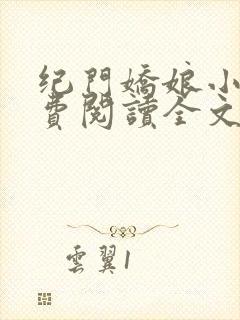 纪門嬌娘小
費閱讀全文
雲翼1